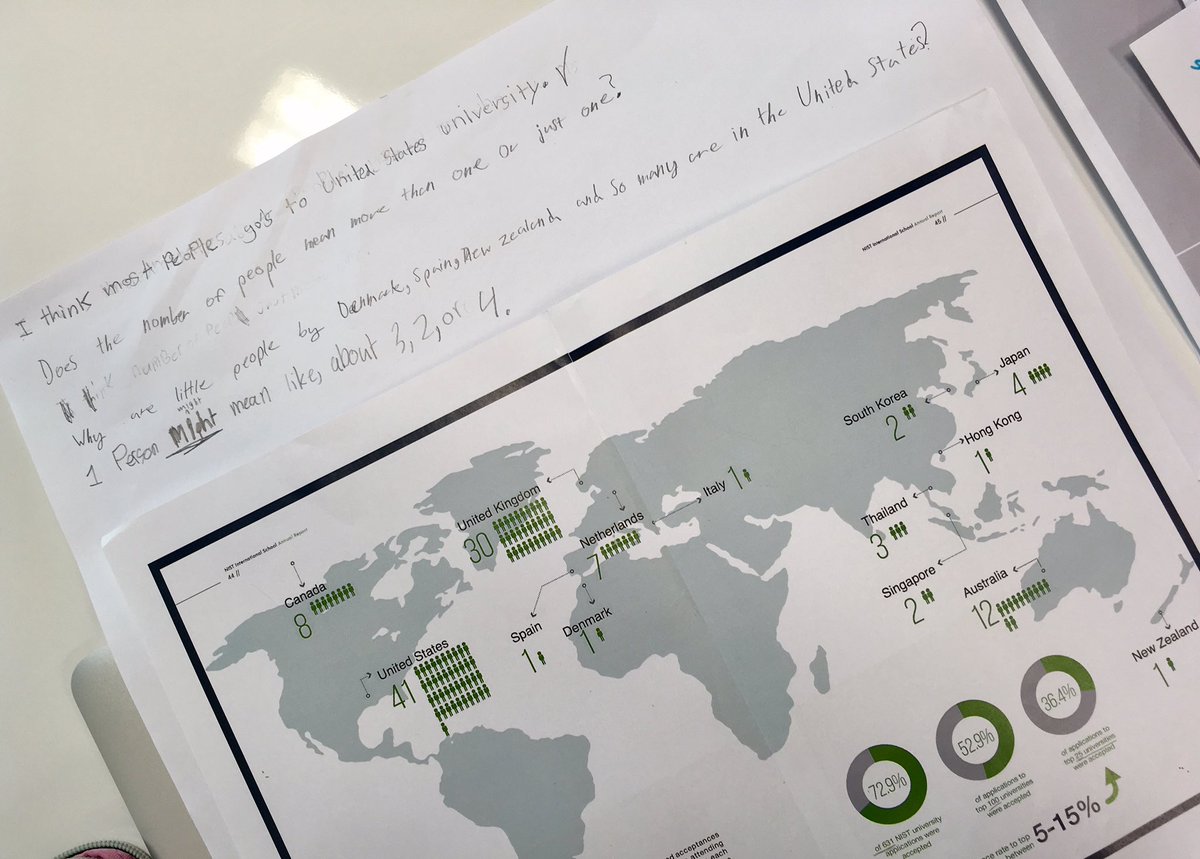 I think most Peoples go's to United States university.
Does the nomber of people mean more than one or just one?
Why are little people by Denmark, Spain, New zealand and so many are in the United States?
1 Person might mean like, about 3, 2, or 4.
NIST International School Annual Report
45 //
NIST International School Annual Report
44 //
Canada
8
United States
41
United Kingdom
30
Netherlands
7
Italy 1
Spain
1
Denmark
1
South Korea
2
Japan
4
Hong Kong
1
Thailand
3
Singapore
2
Australia
12
New Zealand
1
72.9%
of 631 NIST university
applications were
accepted
52.9%
of applications to
top 100 universities
were accepted
36.4%
of applications to
top 25 universities
were accepted
rate to top
between
5-15%
acceptances
attending
each